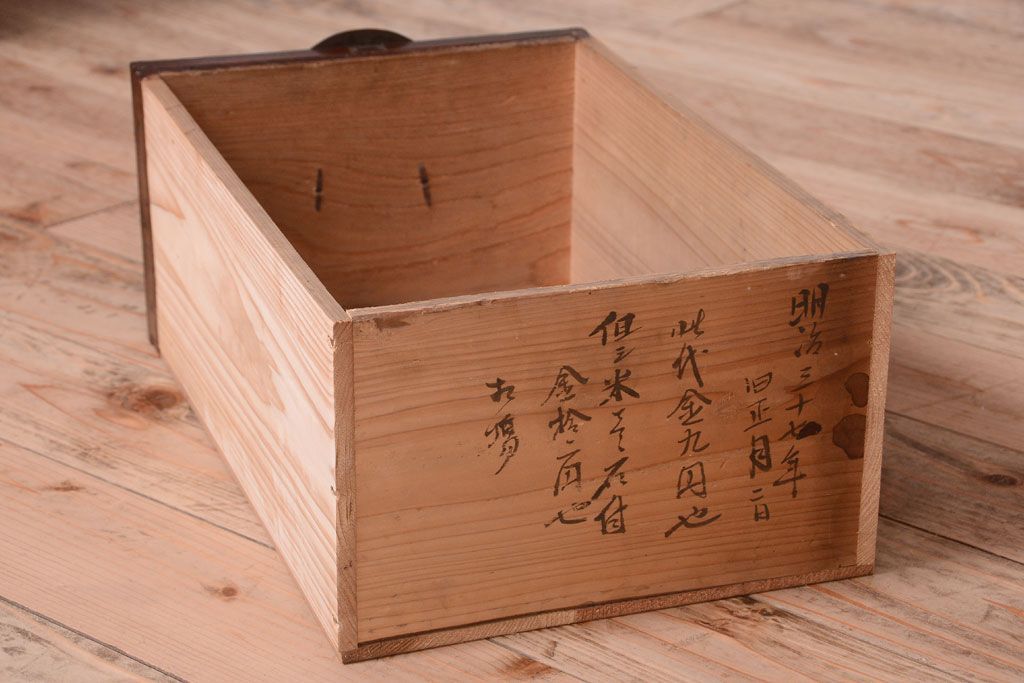 明治三十七年
旧正月二日
此代金九円也
但シ米壱石付
金拾一円也
相場